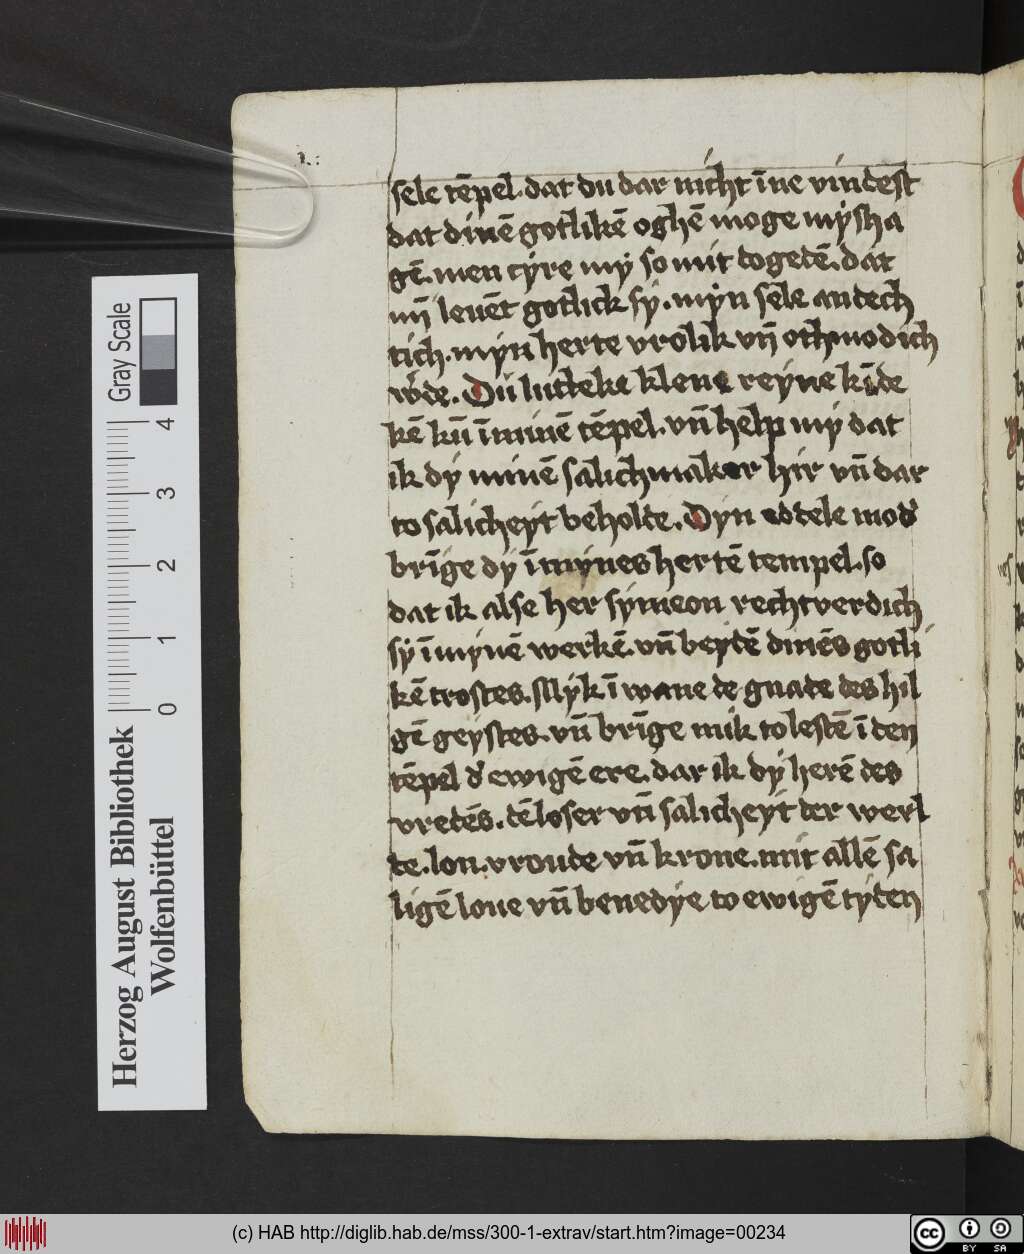 sele tēpel. dat du dar nicht īne vindest
dat dinē gotlikē oghē moge mÿsha
gē. men cÿre mÿ so mit dogedē. dat
mȳ leuēt gotlick sÿ. mÿn sele andech
tich. mÿn herte vrolik vn̄ othmodich
w̉de. Du lutteke klene reÿne kīde
kē kū ī minē tēpel. vn̄ help mÿ dat
ik dÿ minē salichmaker hir vn̄ dar
to salicheÿt beholde. Dÿn eddele mod̉
brīge dÿ ī mÿnes hertē tempel. so
dat ik alse her sÿmeon rechtverdich
sÿ ī mÿnē werkē. vn̄ beÿdē dinēs gotli
kē trostes. Mÿk ī wane de gnade des hil
gē geÿstes. vn̄ brīge mik to lestē ī den
tēpel d̉ ewigē ere. dar ik dÿ herē des
vredēs. dē loser vn̄ salicheÿt der werl
de. lon. vroude vn̄ krone. mit allē sa
ligē loue vn̄ benedÿe to ewigē tÿden
Gray Scale
4
3
2
1
0
Herzog August Bibliothek
Wolfenbüttel
(c) HAB http://diglib.hab.de/mss/300-1-extrav/start.htm?image=00234
CC BY SA